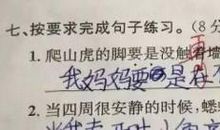 七、按要求完成句子练习。(8分
1. 爬山虎的脚要是没触着墙
我妈妈要是在
2. 当四周很安静的时候,蟋